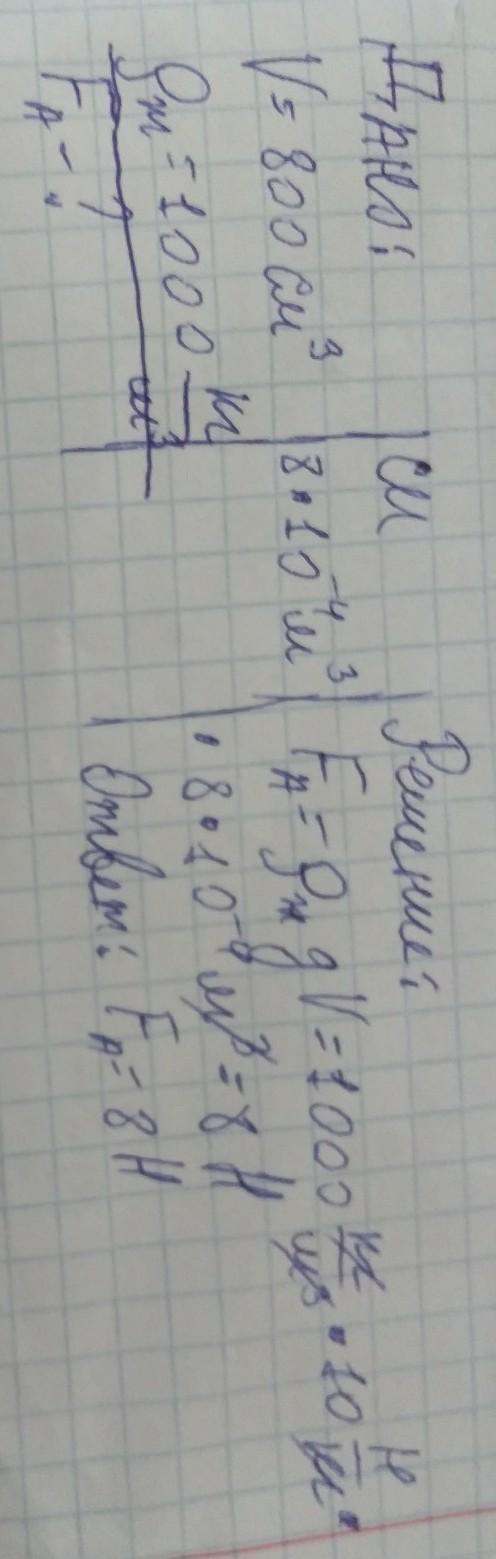 Дано:
V = 800 см³
ρж = 1000 кг/м³
Fₐ - ?
СИ
8·10⁻⁴ м³
Решение:
Fₐ = ρж g V = 1000 кг/м³ · 10 Н/кг ·
· 8·10⁻⁴ м³ = 8 Н
Ответ: Fₐ = 8 Н